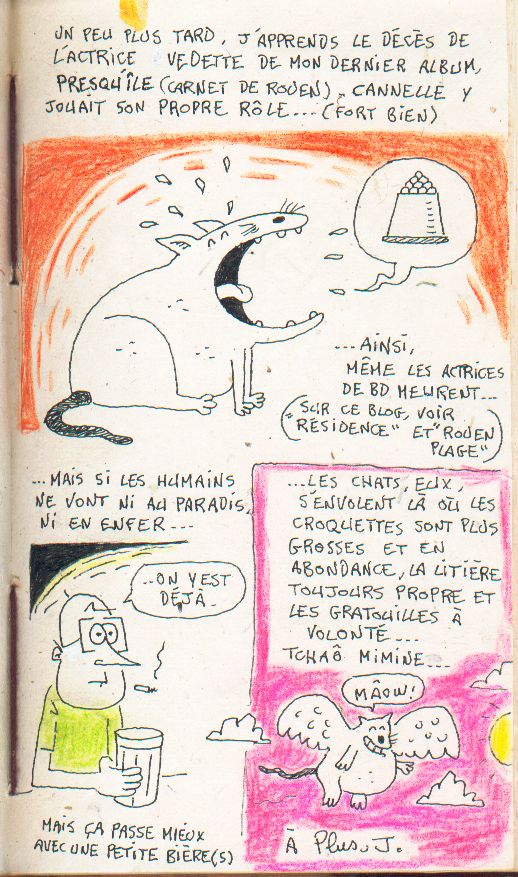 UN PEU PLUS TARD, J'APPRENDS LE DÉCÈS DE
L'ACTRICE VEDETTE DE MON DERNIER ALBUM,
PRESQU'ÎLE (CARNET DE ROUEN). CANNELLE Y
JOUAIT SON PROPRE RÔLE... (FORT BIEN)
...AINSI,
MÊME LES ACTRICES
DE BD MEURENT...
("SUR CE BLOG, VOIR
RÉSIDENCE" ET "ROUEN
PLAGE")
...MAIS SI LES HUMAINS
NE VONT NI AU PARADIS,
NI EN ENFER...
...ON Y EST
DÉJÀ.
MAIS ÇA PASSE MIEUX
AVEC UNE PETITE BIÈRE(S)
...LES CHATS, EUX,
S'ENVOLENT LÀ OÙ LES
CROQUETTES SONT PLUS
GROSSES ET EN
ABONDANCE, LA LITIÈRE
TOUJOURS PROPRE ET
LES GRATOUILLES À
VOLONTÉ...
TCHAÔ MIMINE...
MÂOW!
À Plus, J.